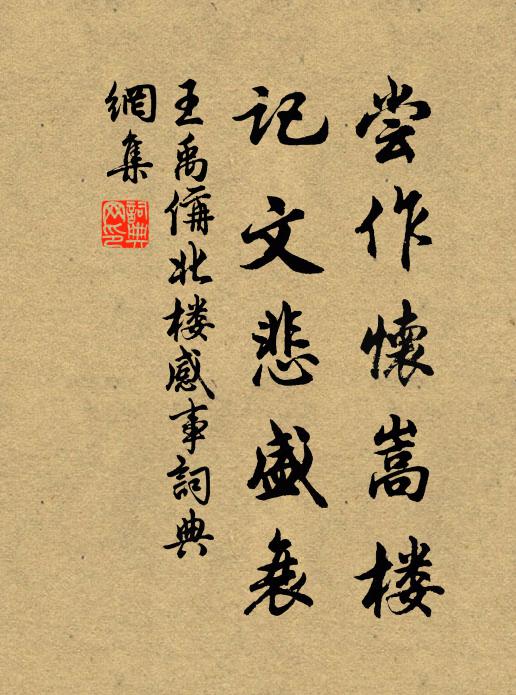 尝作懷嵩楼
记文悲盛衰
王禹偁北楼感事詞典
網集
詞典
网印